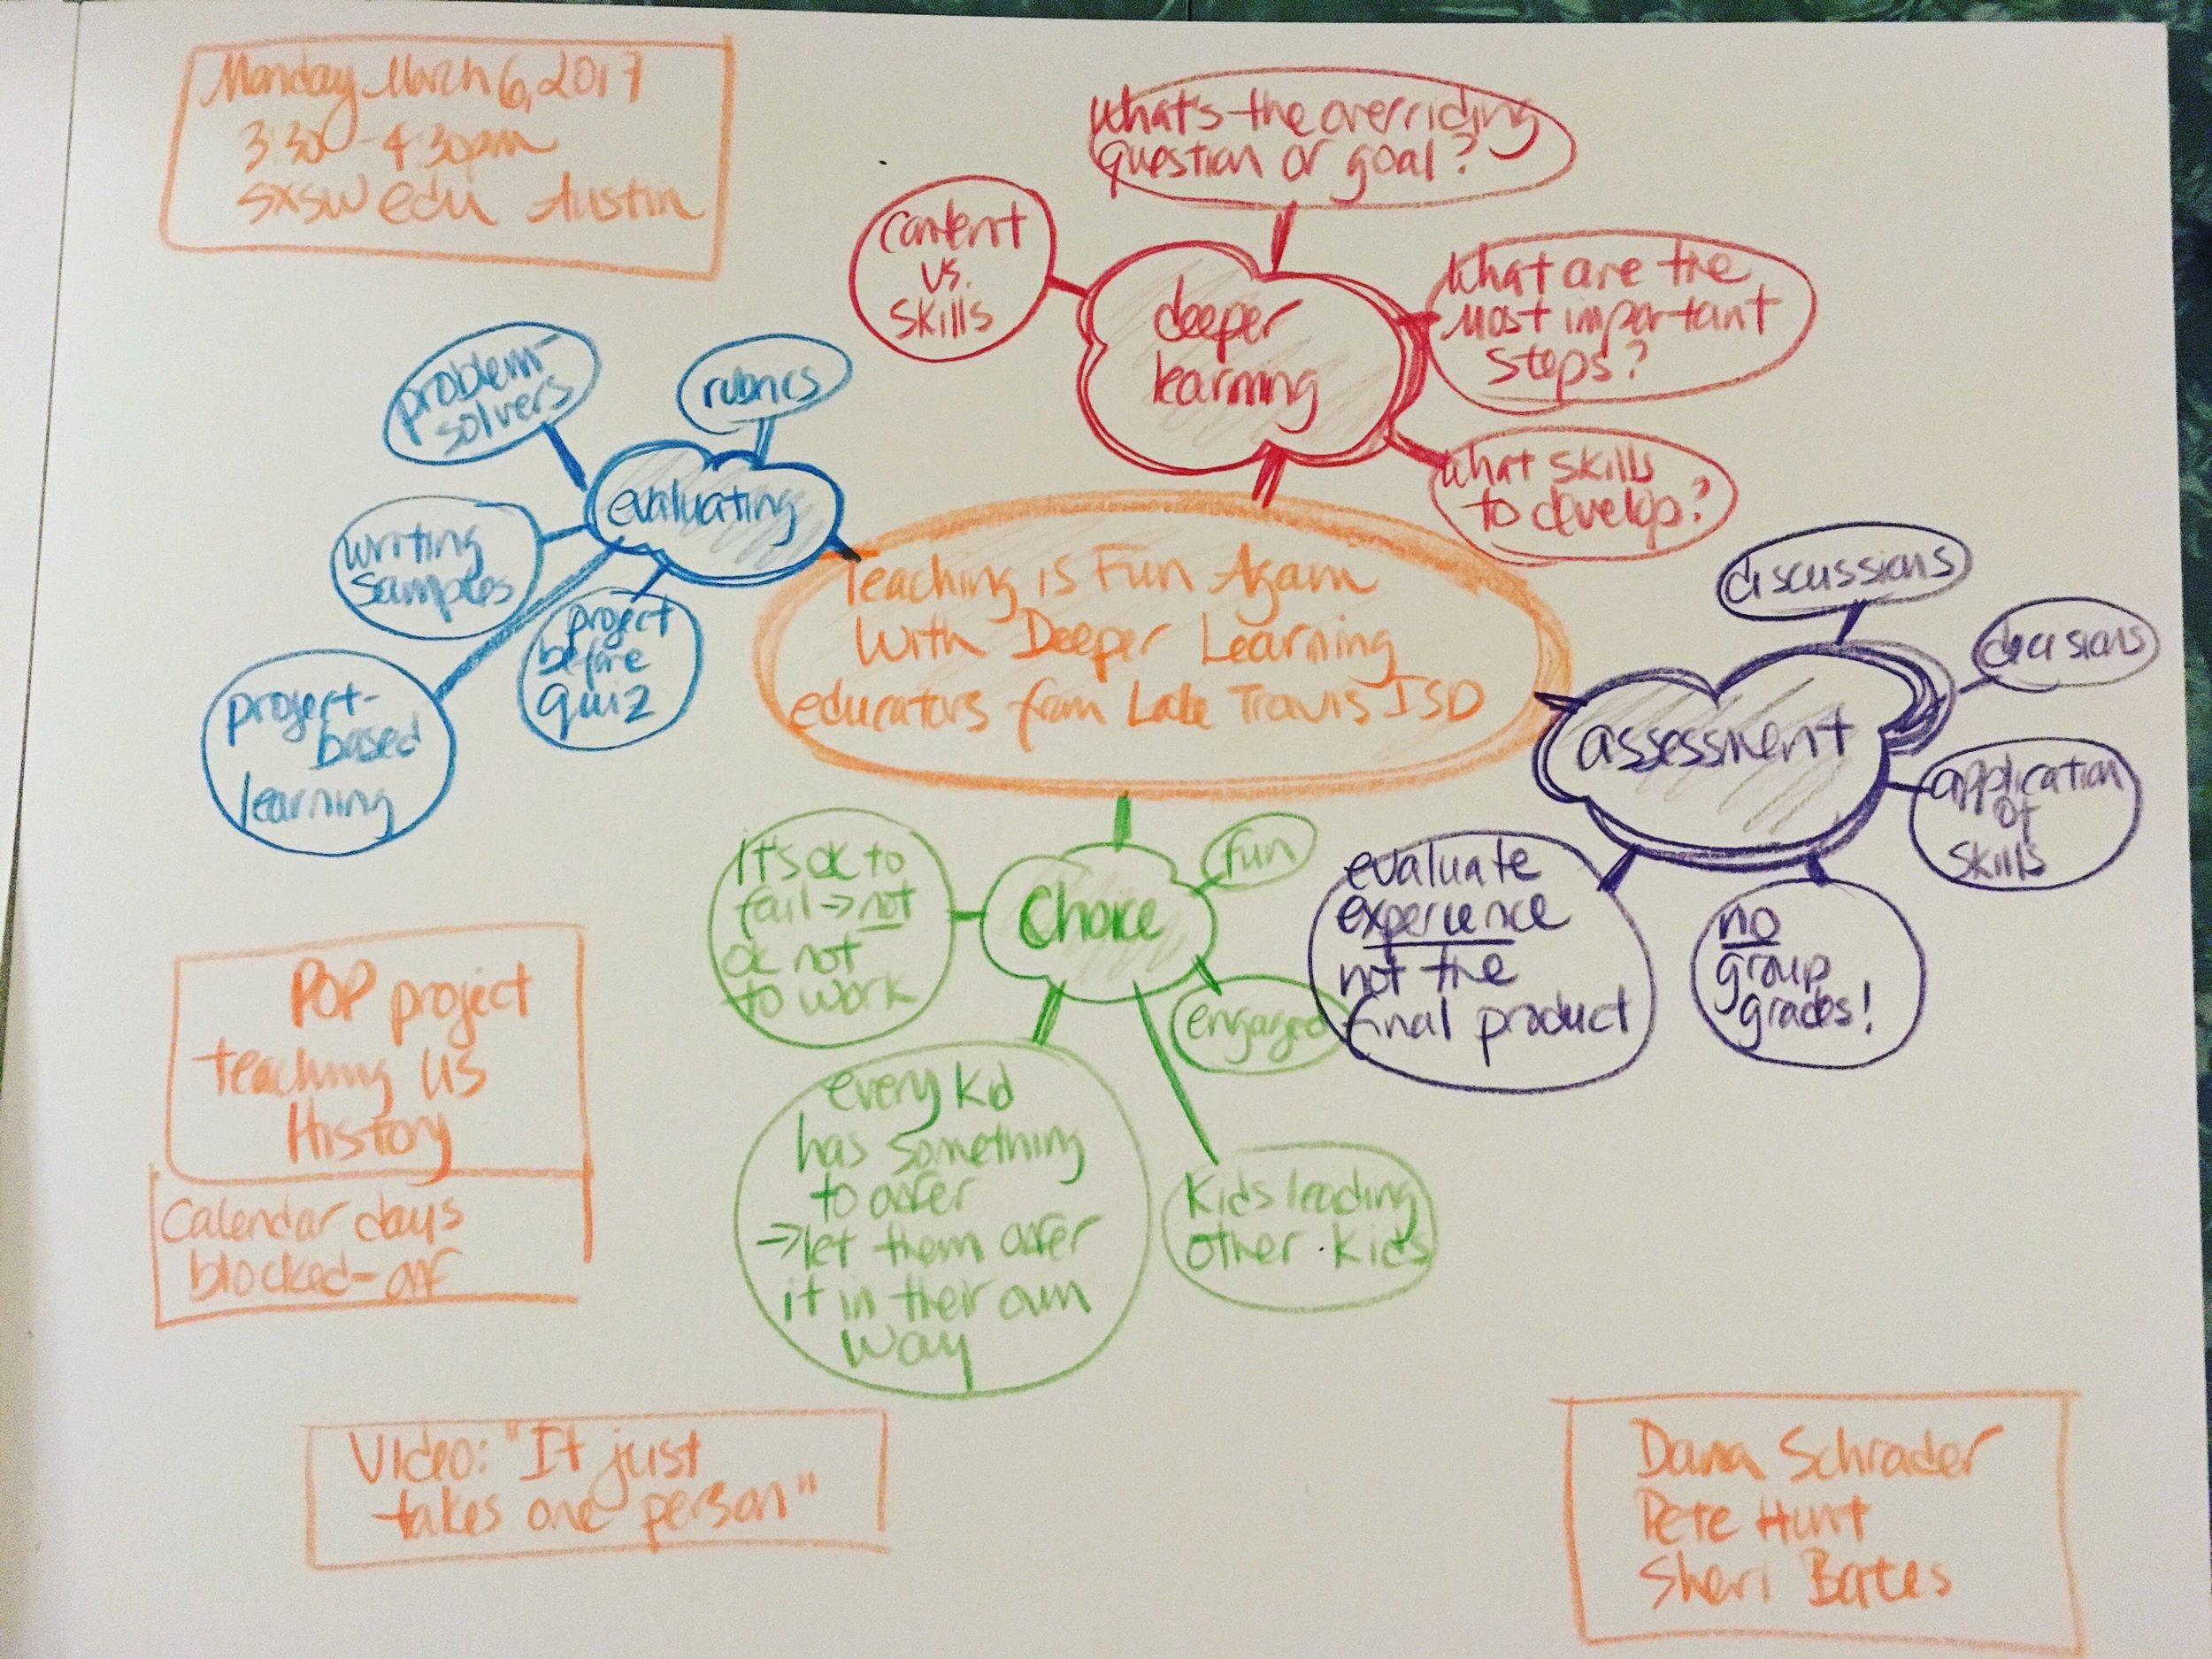 Monday March 6, 2017
3:30-4:30pm
sxsw edu Austin
what's the overriding
question or goal?
content
vs.
skills
deeper
learning
what are the
most important
steps?
what skills
to develop?
problem-
solvers
rubrics
evaluating
writing
samples
project
before
quiz
project-
based
learning
Teaching is Fun Again
With Deeper Learning
educators from Lake Travis ISD
discussions
decisions
assessment
application
of
skills
evaluate
experience
not the
final product
no
group
grades!
it's ok to
fail → not
ok not
to work
Choice
fun
engaged
every kid
has something
to offer
→ let them offer
it in their own
way
Kids leading
other kids
POP project
teaching US
History
Calendar days
blocked-off
Video: "It just
takes one person"
Dana Schrader
Pete Hunt
Sheri Bates